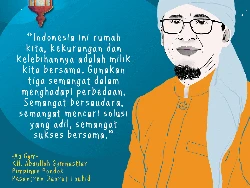 "Indonesia ini rumah
kita, kekurangan dan
kelebihannya adalah milik
kita bersama. Gunakan
tiga semangat dalam
menghadapi perbedaan.
Semangat bersaudara,
semangat mencari solusi
yang adil, semangat
sukses bersama."
-Aa Gym-
KH. Abdullah Gymnastiar
Pimpinan Pondok
Pesantren Daarut Tauhid